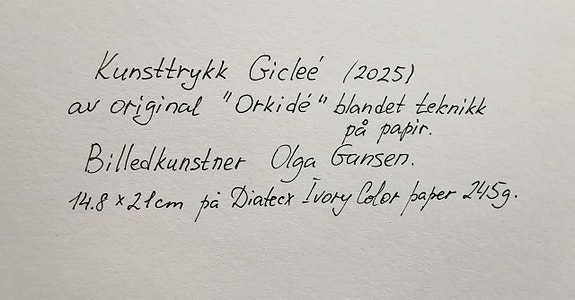 Kunsttrykk Gicleé (2025)
av original "Orkidé" blandet teknikk
på papir.
Billedkunstner Olga Gansen.
14.8 x 21cm på Diatecx Ivory Color paper 245g.